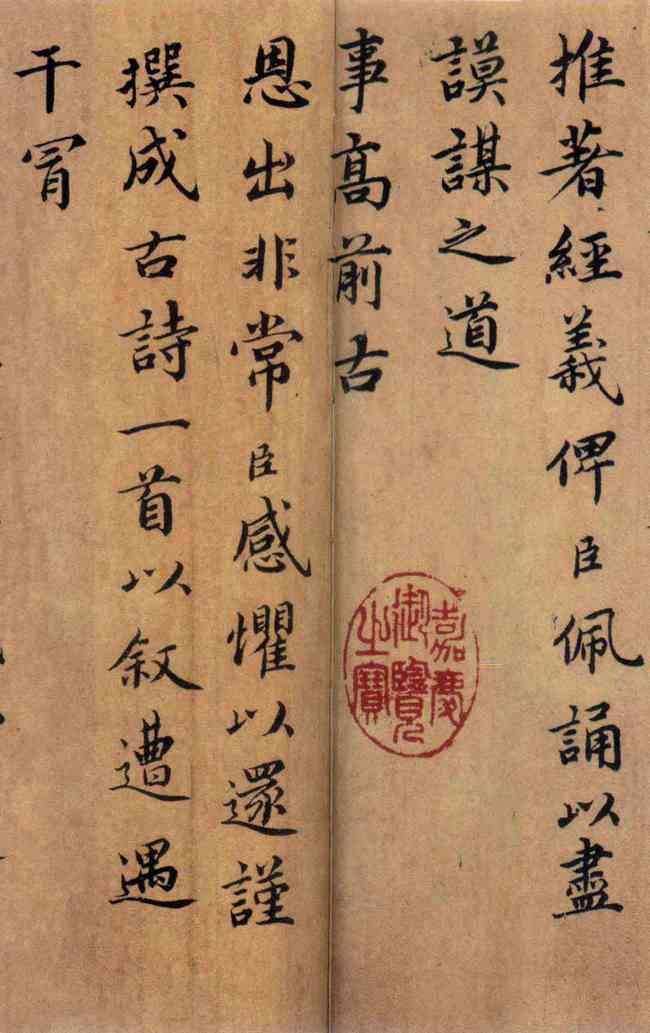 推著經義俾臣佩誦以盡
謨謀之道
事高前古
恩出非常臣感懼以還謹
撰成古詩一首以叙遭遇
干冒
嘉慶
御覽
之寶